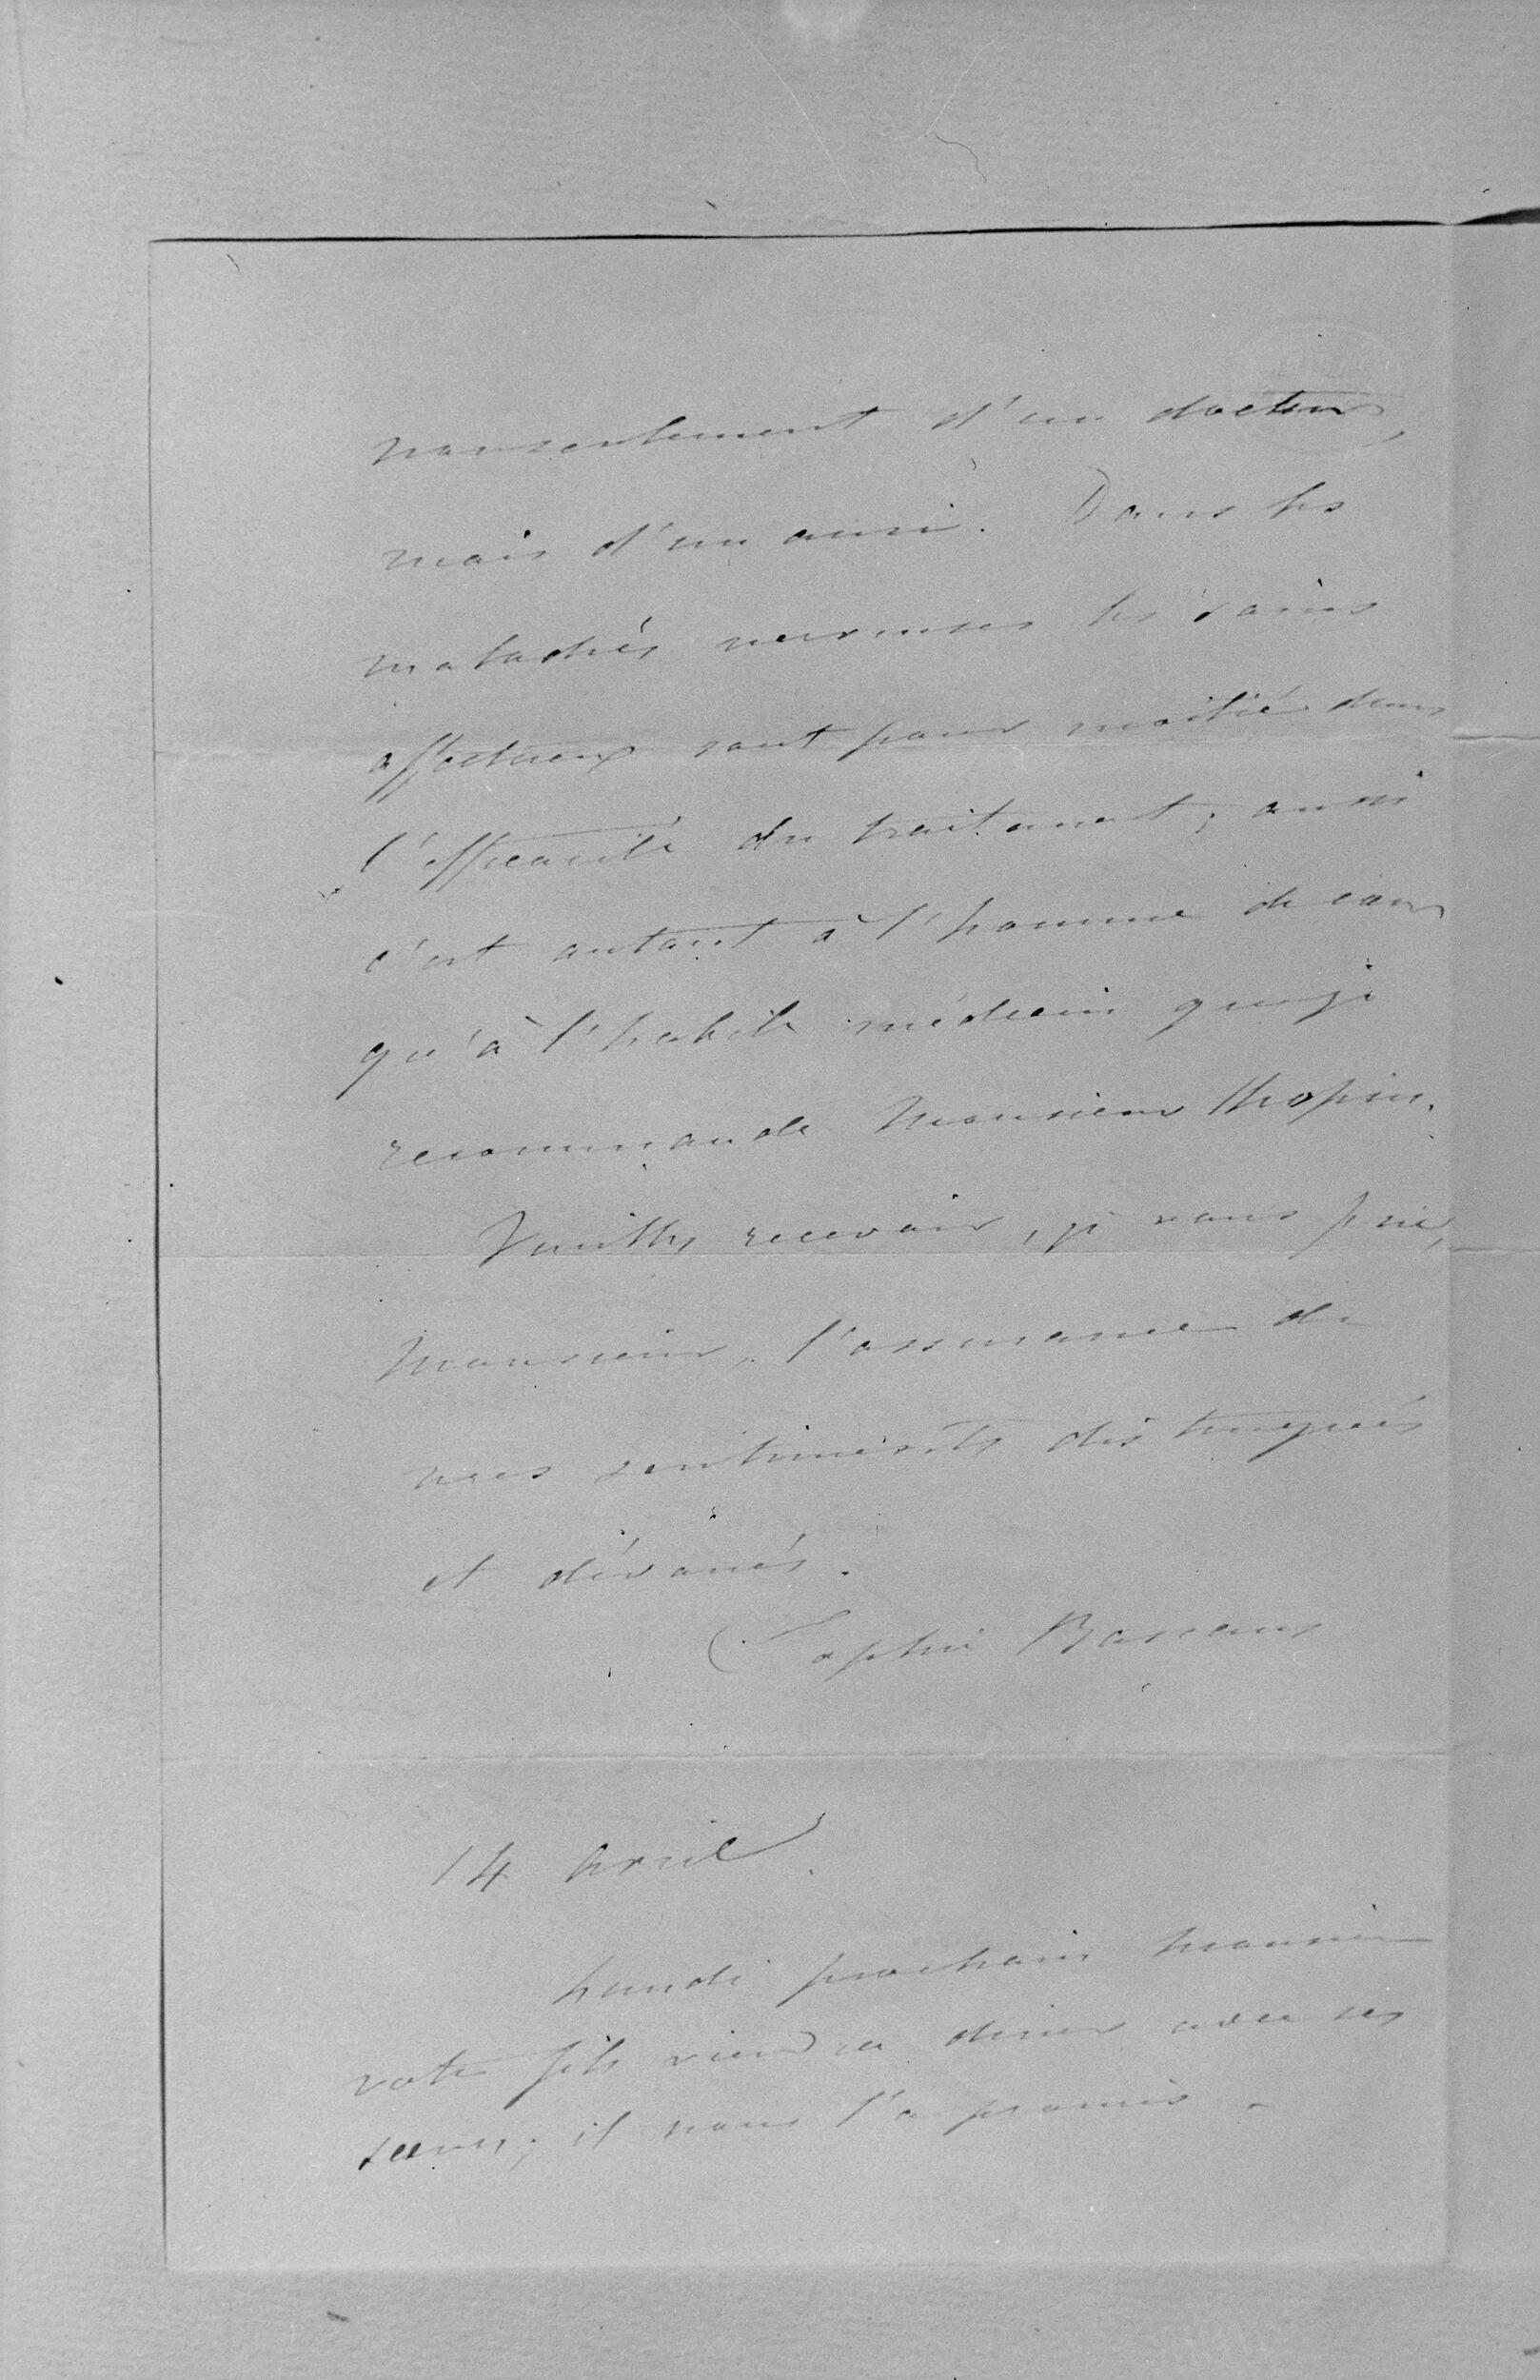 nonseulement d'un docteur,
mais d'un ami. Dans les
maladies nerveuses les soins
affectueux sont pour moitié dans
l'efficacité du traitement; aussi
c'est autant à l'homme de cœur
qu'à l'habile médecin que je
recommande Monsieur
Veuillez recevoir, je vous prie,
Monsieur, l'assurance de
mes sentiments distingués
et dévoués.
Sophie
14 avril
Lundi prochain Monsieur
votre fils viendra diner avec ses
sœurs; il nous l'a promis.